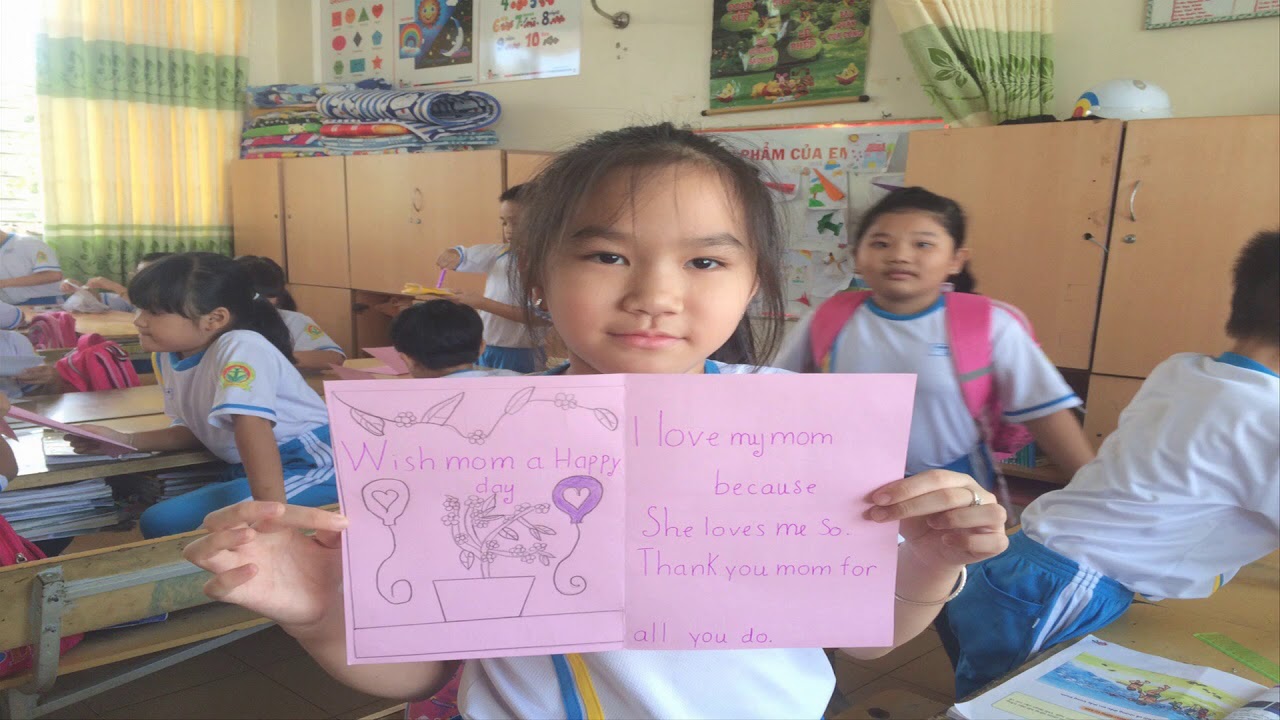 PHẨM CỦA EM
Wish mom a Happy
day
I love my mom
because
She loves me so.
Thank you mom for
all you do.